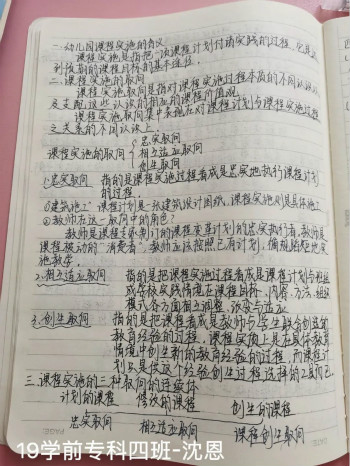 一.幼儿园课程实施的含义
课程实施是指把一项课程计划付诸实践的过程,它是达
到预期的课程目标的基本途径。
二.课程实施的取向
课程实施取向是指对课程实施过程本质的不同认识以
及支配这些认识的相应的课程价值观。
课程实施取向集中表现在对课程计划与课程实施过程
之关系的不同认识上
忠实取向
课程实施的取向 相互适应取向
创生取向
1.忠实取向 指的是课程实施过程看成是忠实地执行课程计划
的过程
①建筑施工 课程计划是一张建筑设计图纸,课程实施则是具体施工
②教师在这一取向中的角色?
教师是课程专家制订的课程变革计划的忠实执行者,教师是
课程被动的“消费者”,教师应该按照已有计划,循规蹈矩地实
施教学。
2.相互适应取向 指的是把课程实施过程看成是课程计划与班级
或学校实践情境在课程目标、内容、方法、组织
模式各方面相互调整、改变与适应
3.创生取向 指的是把课程看成是教师与学生联合创造的
教育经验的过程,课程实质上是在具体教育
情境中创生新的教育经验的过程,而课程计
划只是供这个经验创生过程选择的工具而已
三.课程实施的三种取向的连续体
计划的课程 修改的课程 创生的课程
忠实取向 相互适应取向 课程创生取向
19学前专科四班-沈恩